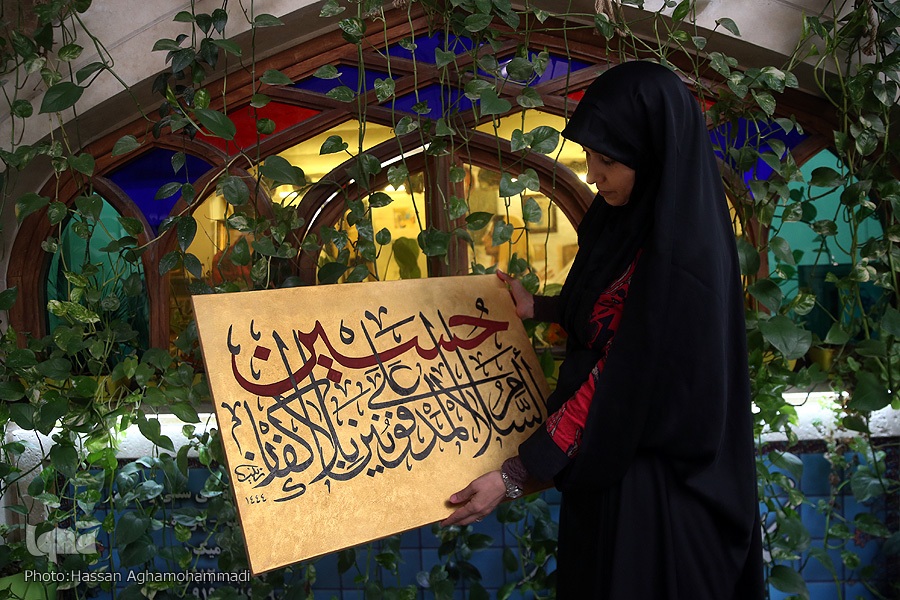 حسین
السلام علی المدفونین بلا اکفان
۱۴۴۴
iqna
Photo:Hassan Aghamohammadi